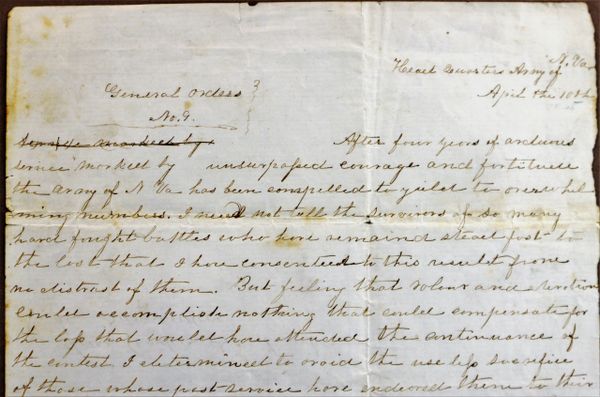 Head Quarters Army of N. Va
April the 10th
General Orders
No. 9.
service marked by
After four years of arduous
service marked by unsurpassed courage and fortitude
the Army of N Va has been compelled to yield to overwhel
ming numbers. I need not tell the survivors of so many
hard fought battles who have remaind steadfast to
the last that I have consented to this result from
no distrust of them. But feeling that valour and devotion
could accomplish nothing that could compensate for
the loss that would have attended the continuance of
the contest I determined to avoid the useless sacrifice
of those whose past service have endeared them to their